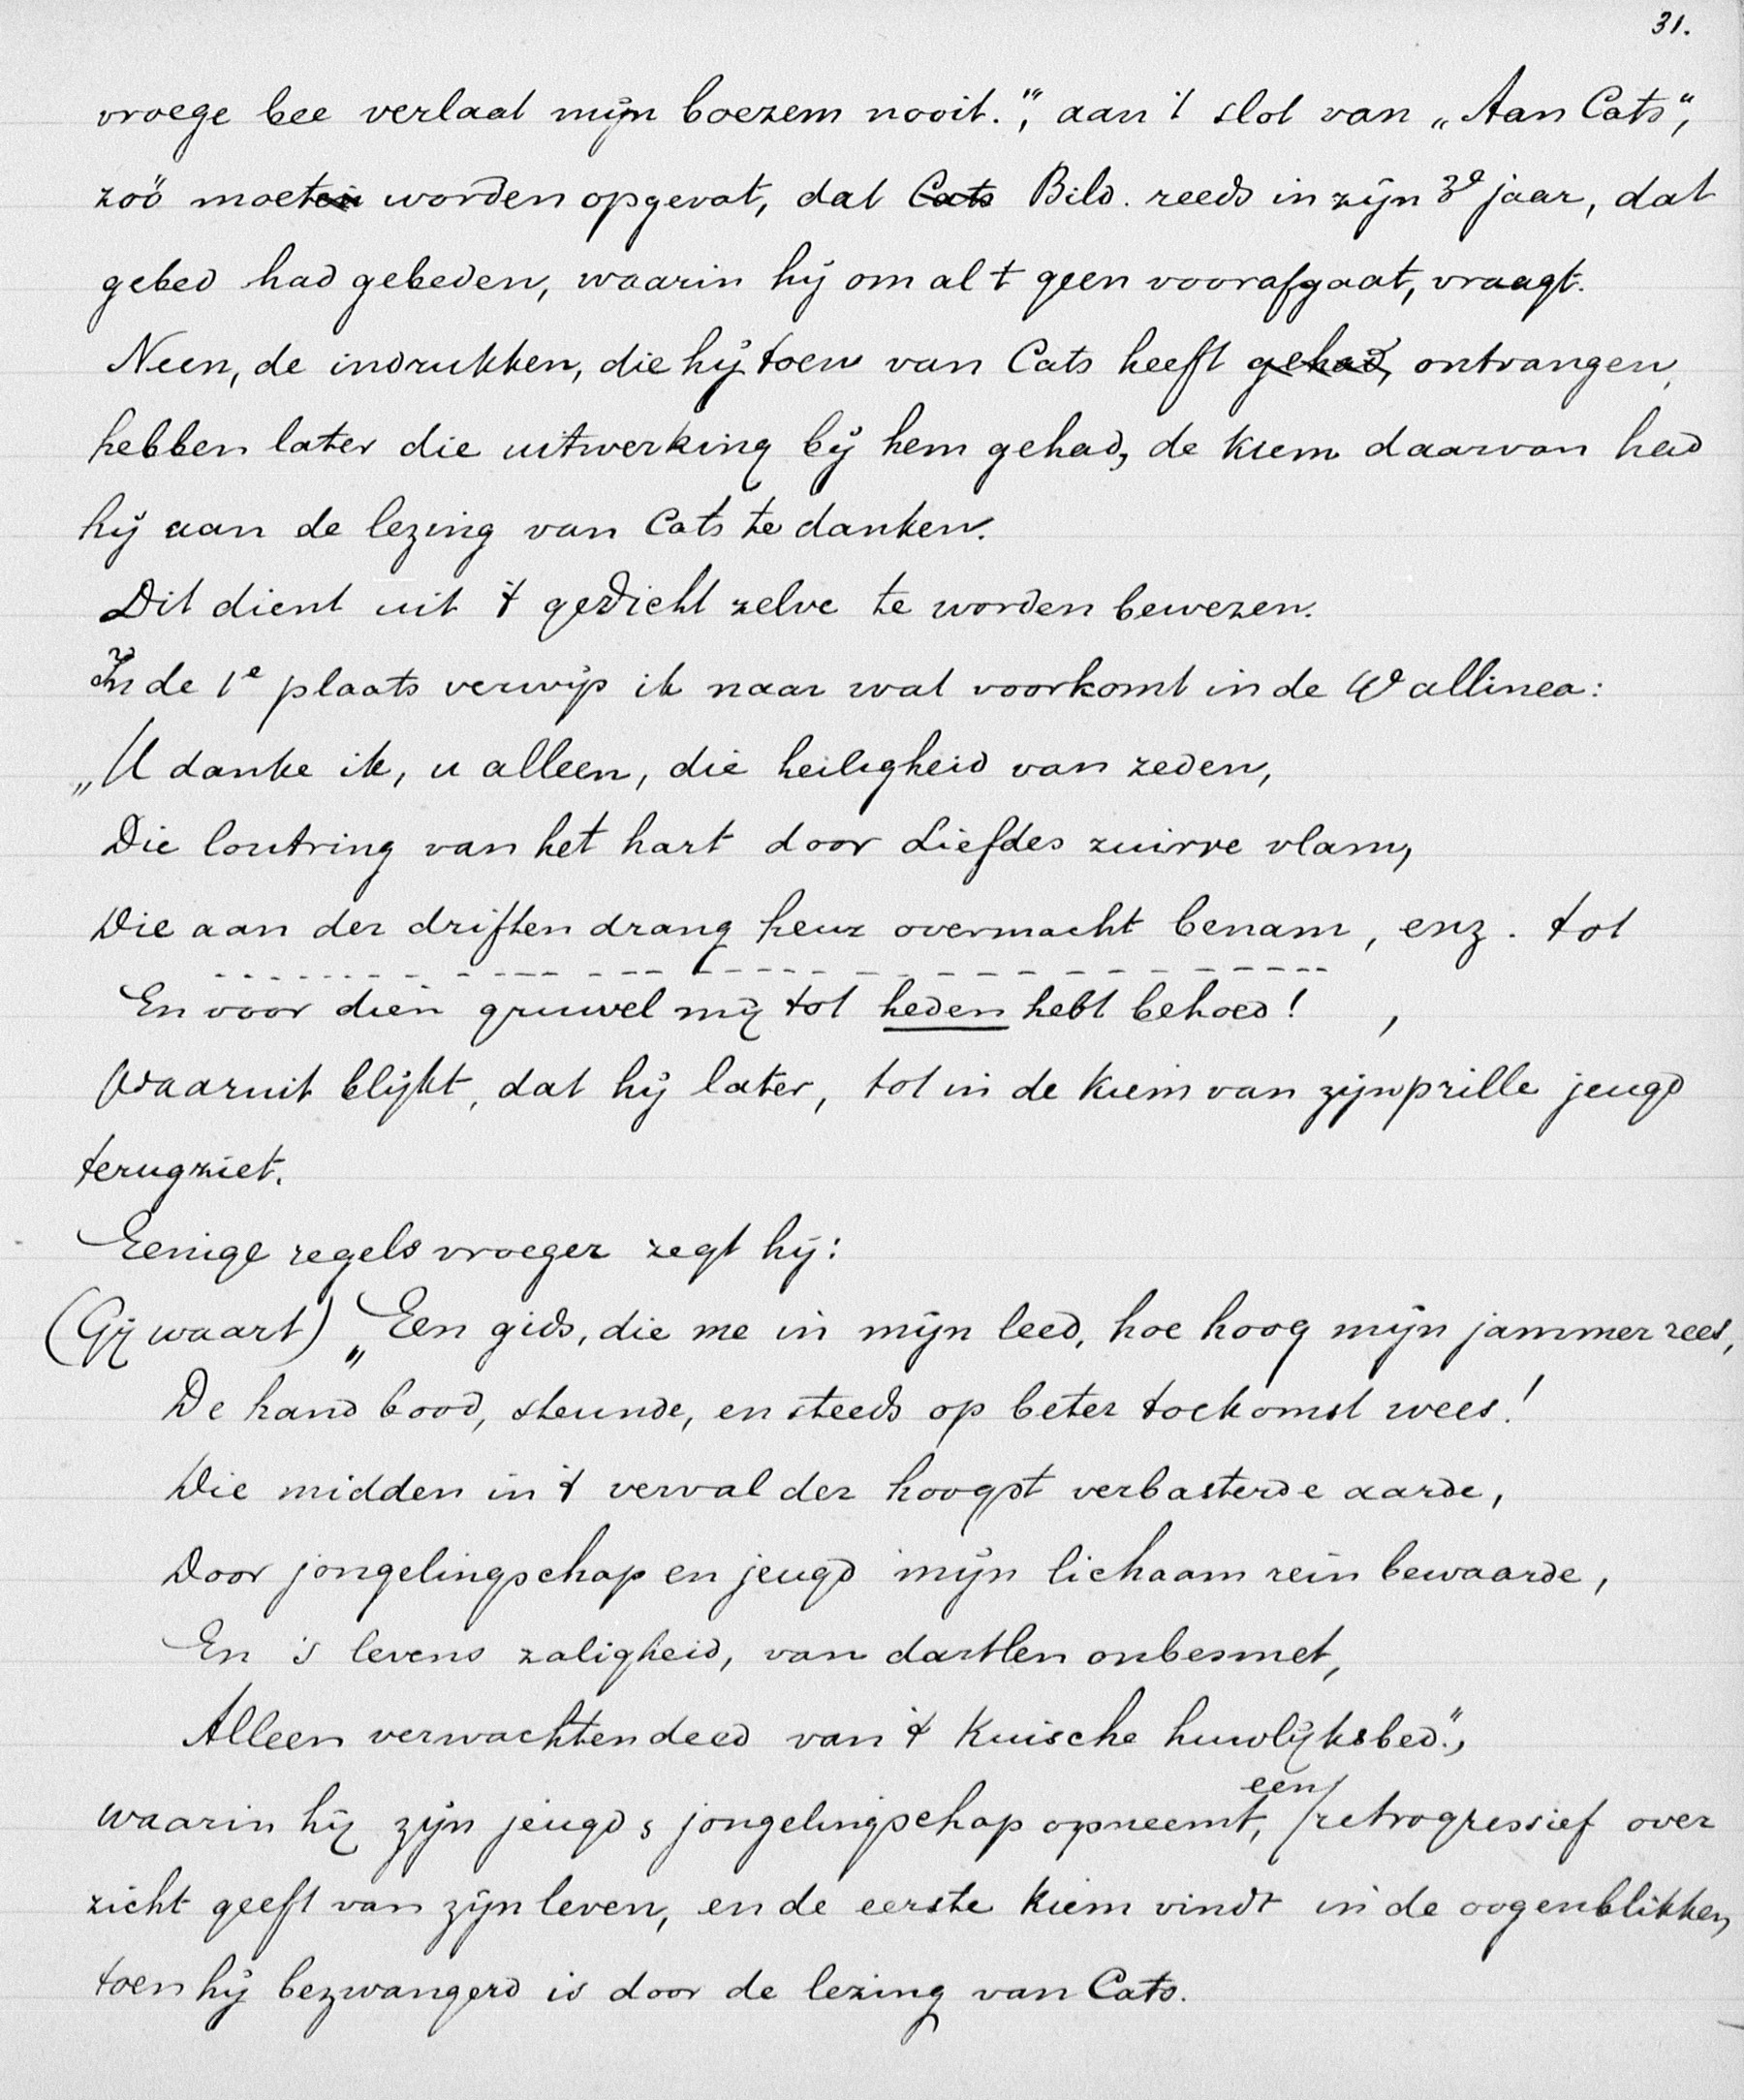 31.
vroege bee verlaat mijn boezem nooit.", aan 't slot van „Aan Cats",
zoó moeten worden opgevat, dat Cats Bild. reeds in zijn 3e jaar, dat
gebed had gebeden, waarin hij om al 't geen voorafgaat, vraagt.
Neen, de indrukken, die hij toen van Cats heeft gehad, ontvangen,
hebben later die uitwerking bij hem gehad, de kiem daarvan had
hij aan de lezing van Cats te danken.
Dit dient uit 't gedicht zelve te worden bewezen.
In de 1e plaats verwijs ik naar wat voorkomt in de Wallinea:
„U danke ik, u alleen, die heiligheid van zeden,
Die loutring van het hart door Liefdes zuivre vlam,
Die aan der driften drang heur overmacht benam, enz. tot
En voor dien gruwel mij tot heden hebt behoed! ,
Waaruit blijkt, dat hij later, tot in de kiem van zijn prille jeugd
terugziet.
Eenige regels vroeger zegt hij:
(Gij waart) „Een gids, die me in mijn leed, hoe hoog mijn jammer rees,
De hand bood, steunde, en steeds op beter toekomst wees!
Die midden in 't verval der hoogst verbasterde aarde,
Door jongelingschap en jeugd mijn lichaam rein bewaarde,
En 's levens zaligheid, van dartlen onbesmet,
Alleen verwachten deed van 't kuische huwlijksbed.",
waarin hij zijn jeugd & jongelingschap opneemt, een retrogressief over
zicht geeft van zijn leven, en de eerste kiem vindt in de oogenblikken,
toen hij bezwangerd is door de lezing van Cats.